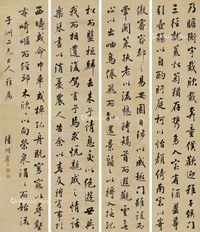 乃瞻衡宇載欣載奔僮僕歡迎稚子候門
三徑就荒松菊猶存攜幼入室有酒盈尊
引壺觴以自酌眄庭柯以怡顏倚南窗以寄
傲審容膝之易安園日涉以成趣門雖設而
常關策扶老以流憩時矯首而遐觀雲無
心以出岫鳥倦飛而知還景翳翳以將入撫孤
松而盤桓歸去來兮請息交以絕遊世與
我而相遺復駕言兮焉求悅親戚之情話樂
琴書以消憂農人告余以春及將有事于
西疇或命巾車或棹孤舟既窈窕以尋壑
亦崎嶇而經丘木欣欣以向榮泉涓涓而始流
二兄大人雅屬
陸潤庠